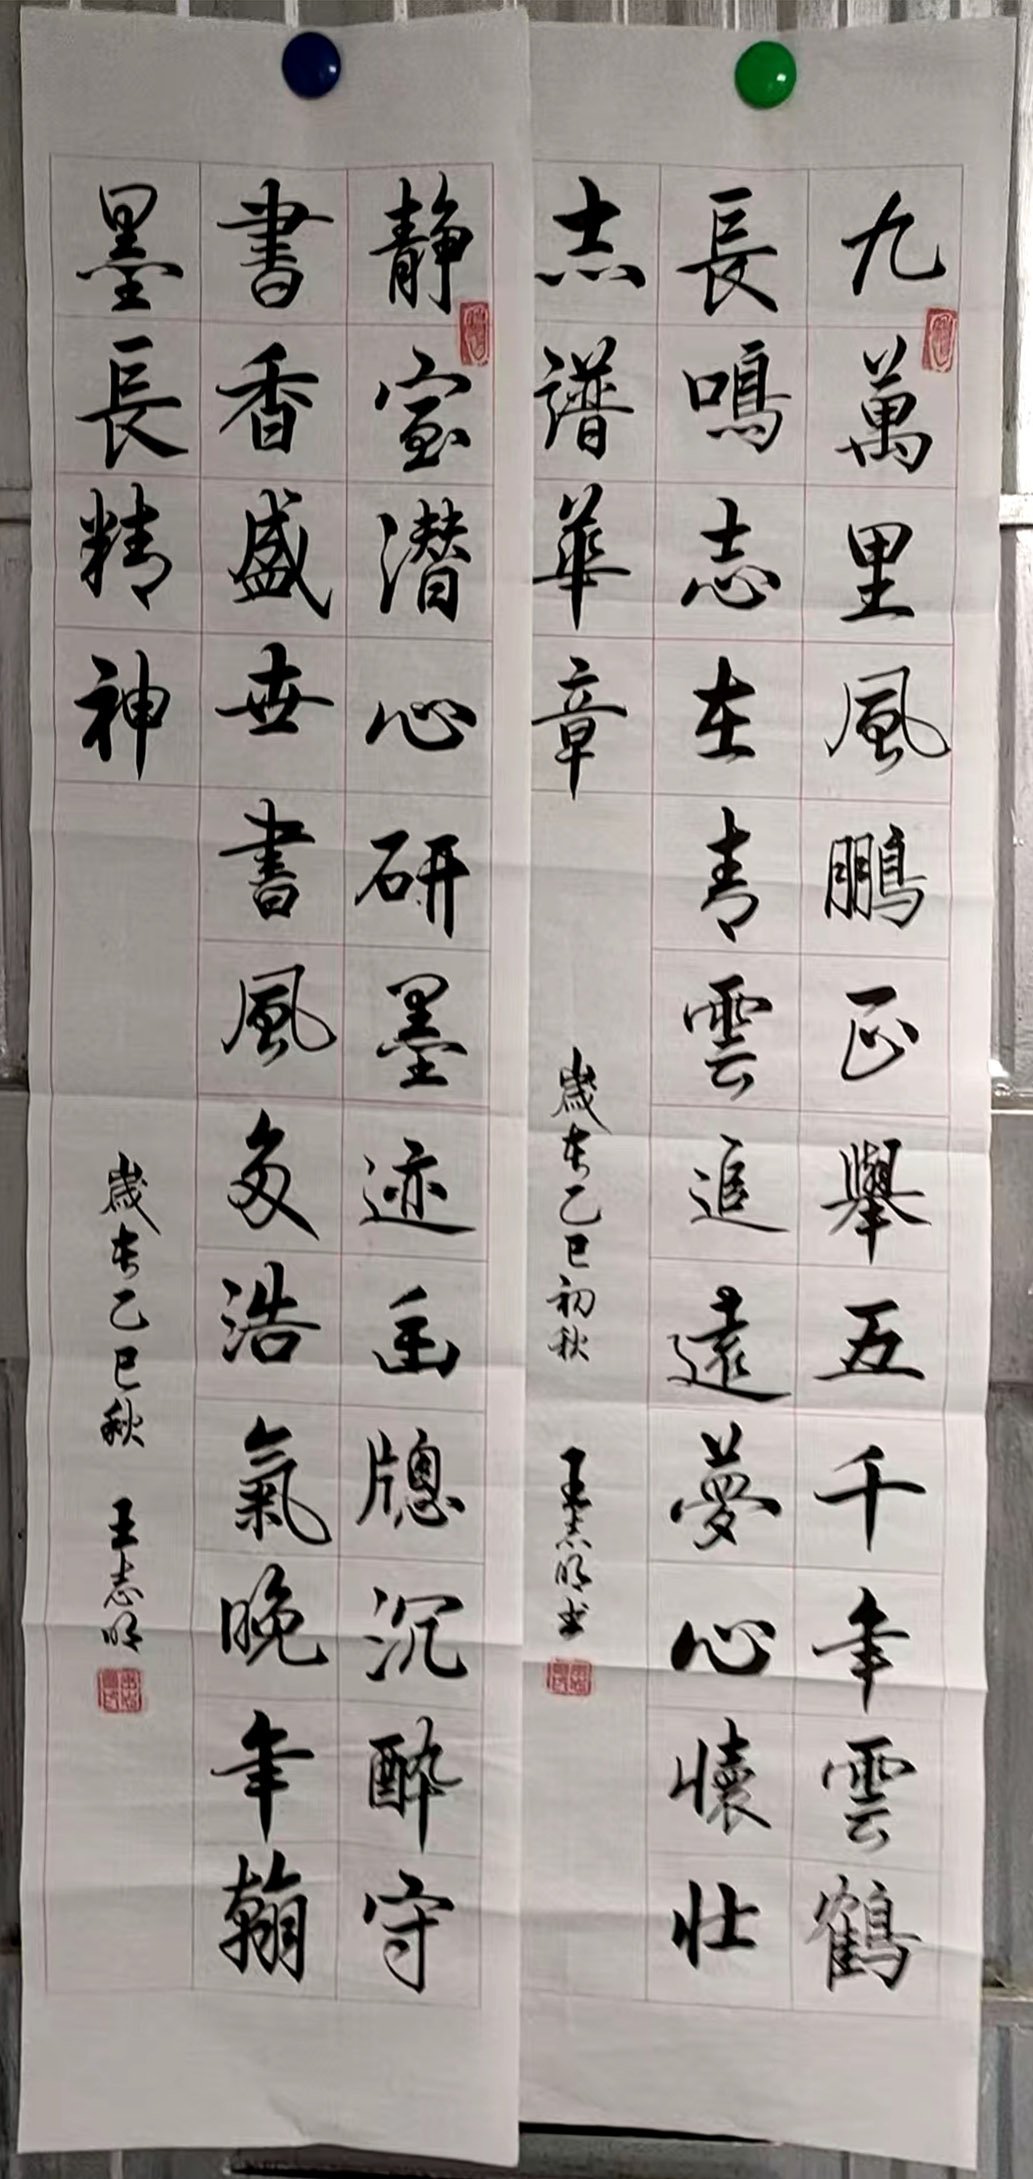 九萬里風鹏正舉五千年雲鶴
長鳴志在青雲追遠夢心懷壯
志譜華章
歲在乙巳初秋 王志明书
静室潜心研墨迹幽牕沉酔守
書香盛世書風多浩氣晚年翰
墨長精神
歲在乙巳秋 王志明